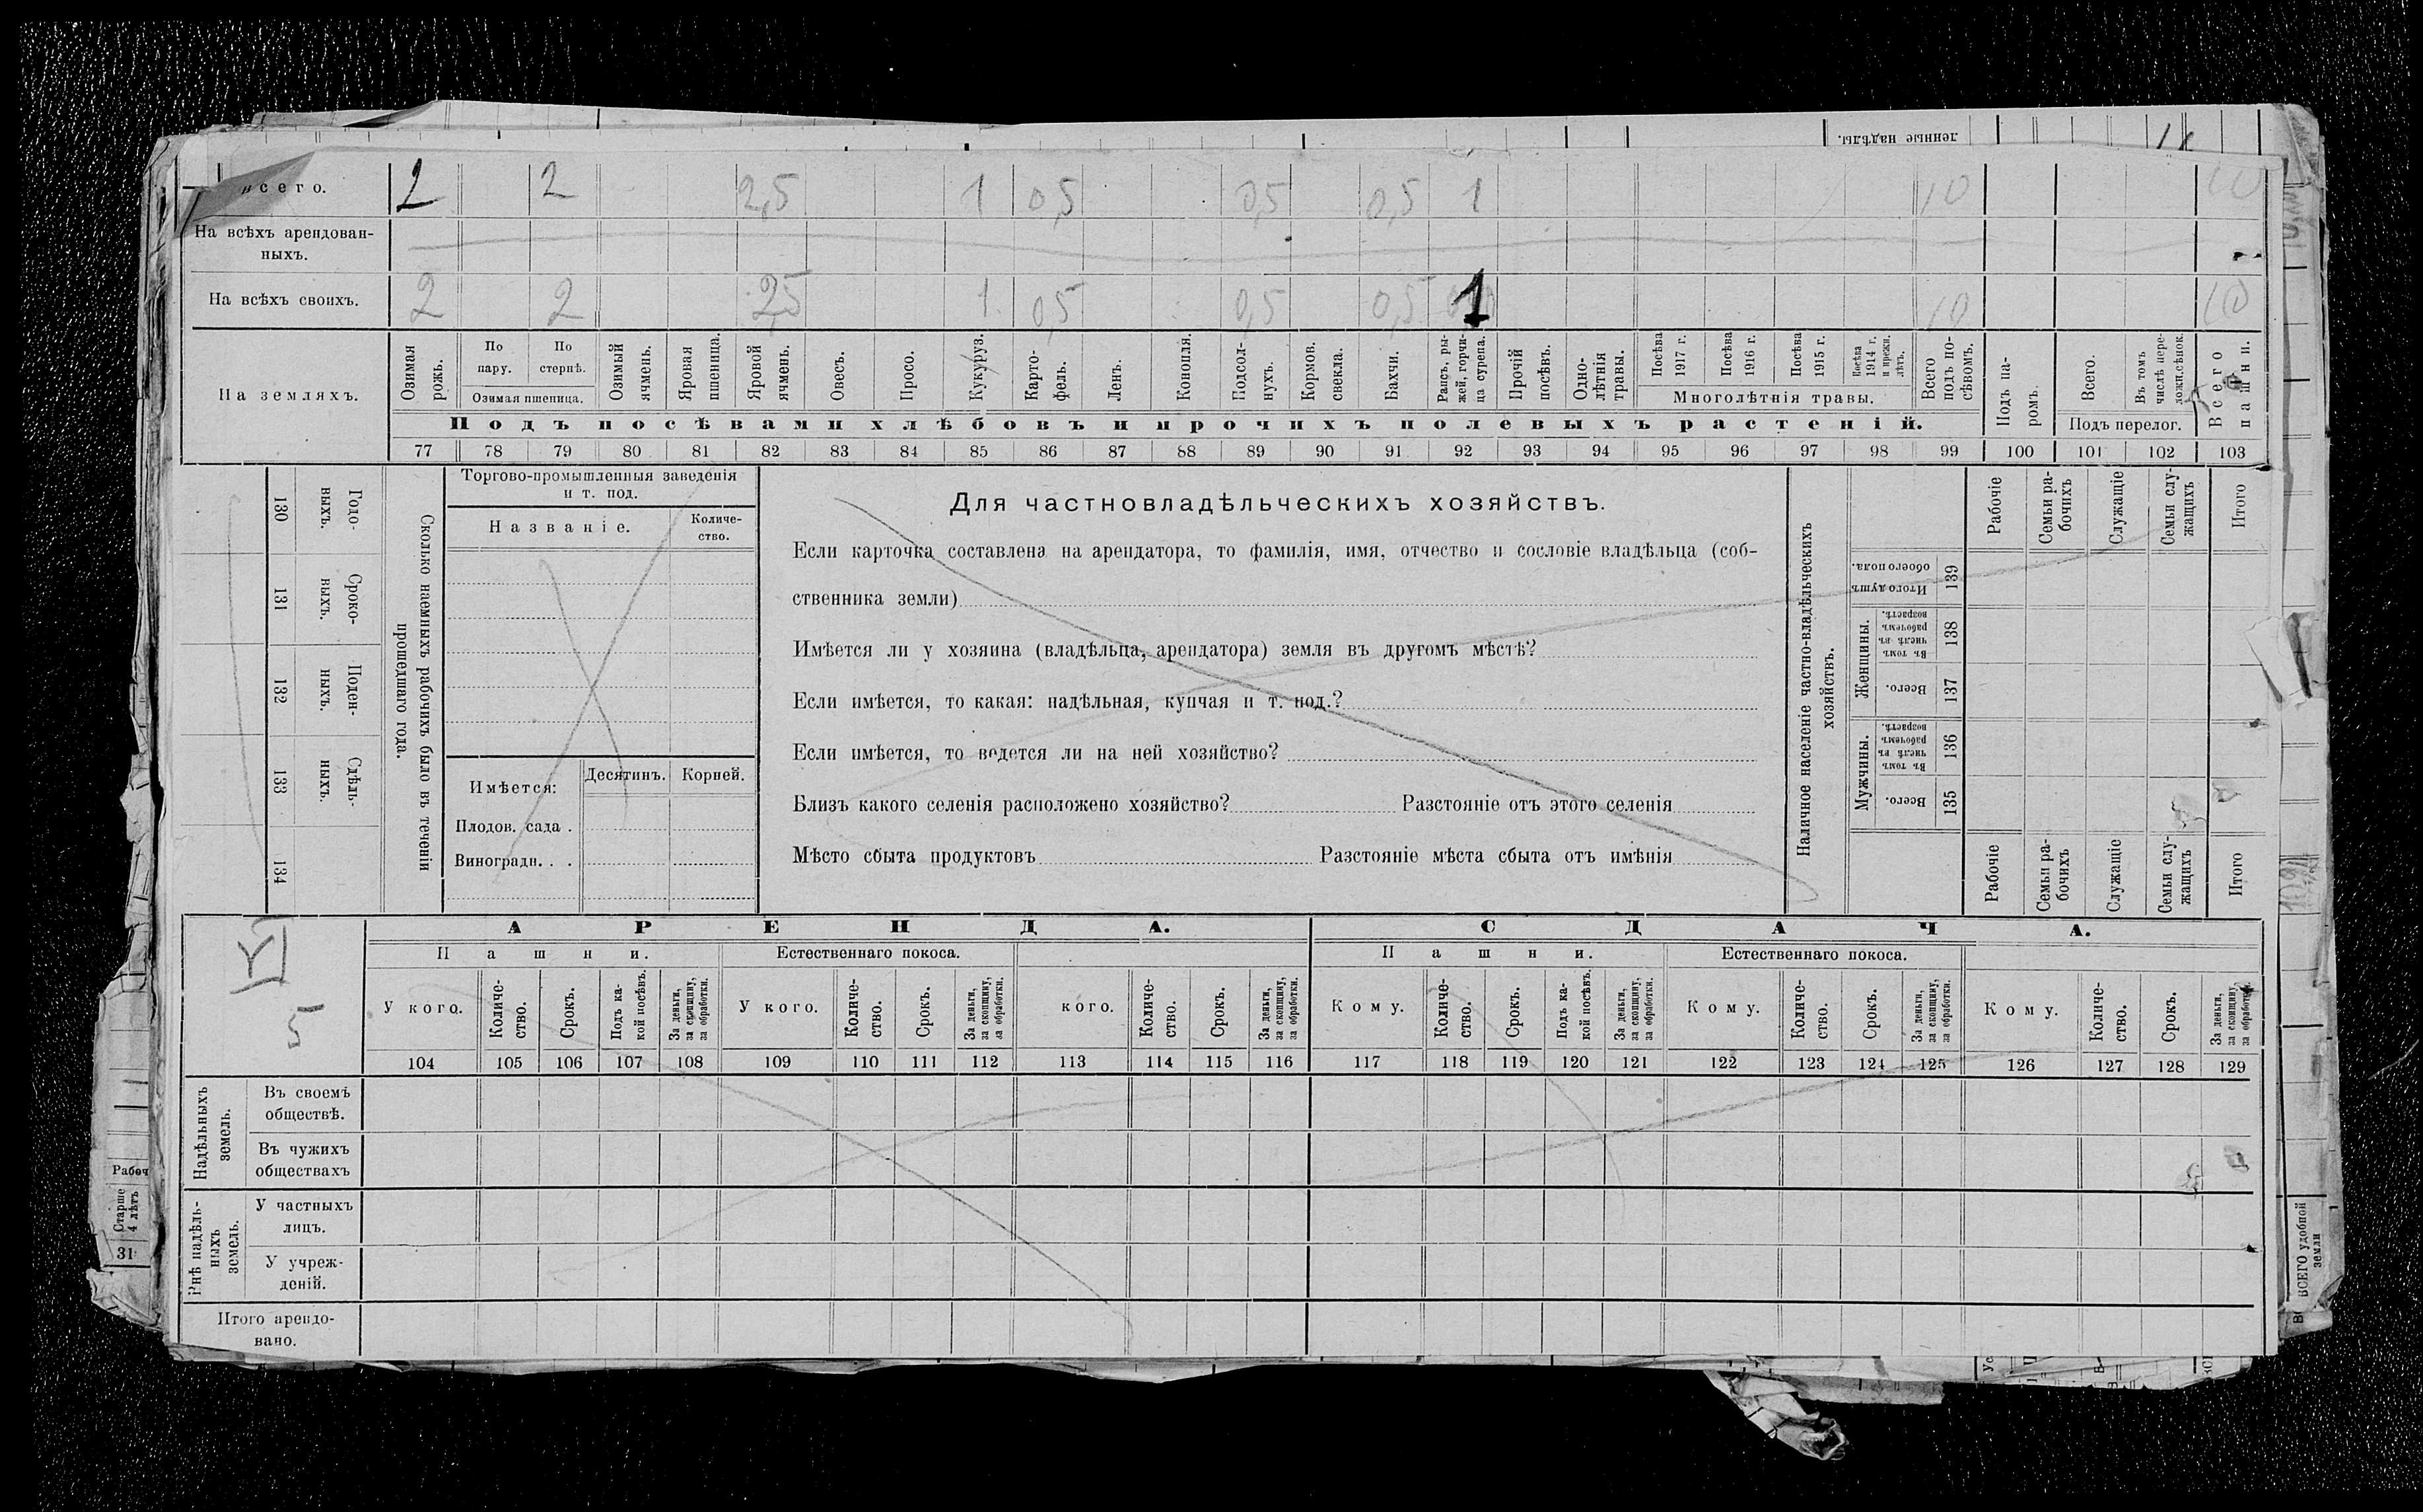 ленные надѣлы.
всего. 2 2 2,5 1 0,5 0,5 0,5 1 10 10
На всѣхъ арендован-
ныхъ.
На всѣхъ своихъ. 2 2 2,5 1 0,5 0,5 0,5 1 10 10
На земляхъ.
Озимая рожь.
По пару.
По стернѣ.
Озимая пшеница.
Озимый ячмень.
Яровая пшеница.
Яровой ячмень.
Овесъ.
Просо.
Кукуруз.
Карто-
фель.
Ленъ.
Конопля.
Подсол-
нухъ.
Кормов. свекла.
Бахчи.
Рапсъ, ры-
жей, горчи-
ца сурепа.
Прочій посѣвъ.
Одно-
лѣтнія травы.
Посѣва 1917 г.
Посѣва 1916 г.
Посѣва 1915 г.
Посѣва 1914 г. и прежн. лѣтъ.
Многолѣтнія травы.
Всего подъ по-
сѣвомъ.
Подъ па-
ромъ.
Всего.
Въ томъ числѣ пере-
ложн.сѣнок.
Подъ перелог.
Всего пашни.
Подъ посѣвами хлѣбовъ и прочихъ полевыхъ растеній.
77 78 79 80 81 82 83 84 85 86 87 88 89 90 91 92 93 94 95 96 97 98 99 100 101 102 103
Сколько наемныхъ рабочихъ было въ теченіи
прошедшаго года.
Годо-
ныхъ.
130
Сроко-
выхъ.
131
Поден-
ныхъ.
132
Сдѣль-
ныхъ.
133
134
Торгово-промышленныя заведенія
и т. под.
Названіе.
Количе-
ство.
Имѣется:
Десятинъ. Корней.
Плодов. сада .
Виноградн. . .
Для частновладѣльческихъ хозяйствъ.
Если карточка составлена на арендатора, то фамилія, имя, отчество и сословіе владѣльца (соб-
ственника земли)
Имѣется ли у хозяина (владѣльца, арендатора) земля въ другомъ мѣстѣ?
Если имѣется, то какая: надѣльная, купчая и т. под.?
Если имѣется, то ведется ли на ней хозяйство?
Близъ какого селенія расположено хозяйство? Разстояніе отъ этого селенія
Мѣсто сбыта продуктовъ Разстояніе мѣста сбыта отъ имѣнія
Наличное населеніе частно-владѣльческихъ
хозяйствъ.
Рабочіе
Семьи ра-
бочихъ
Служащіе
Семьи слу-
жащихъ
Итого
Итого душъ
обоего пола.
139
Женщины.
Въ томъ
числѣ въ
рабочемъ
возрастѣ.
138
Всего.
137
Мужчины.
Въ томъ
числѣ въ
рабочемъ
возрастѣ.
136
Всего.
135
Рабочіе
Семьи ра-
бочихъ
Служащіе
Семьи слу-
жащихъ
Итого
VI
5
АРЕНДА. СДАЧА.
Пашни. Естественнаго покоса. Пашни. Естественнаго покоса.
У кого.
Количе-
ство.
Срокъ.
Подъ ка-
кой посѣвъ.
За деньги,
за скопщину,
за обработки.
У кого.
Количе-
ство.
Срокъ.
За деньги,
за скопщину,
за обработки.
кого.
Количе-
ство.
Срокъ.
За деньги,
за скопщину,
за обработки.
Кому.
Количе-
ство.
Срокъ.
Подъ ка-
кой посѣвъ.
За деньги,
за скопщину,
за обработки.
Кому.
Количе-
ство.
Срокъ.
За деньги,
за скопщину,
за обработки.
Кому.
Количе-
ство.
Срокъ.
За деньги,
за скопщину,
за обработки.
104 105 106 107 108 109 110 111 112 113 114 115 116 117 118 119 120 121 122 123 124 125 126 127 128 129
Надѣльныхъ
земель.
Въ своемъ
обществѣ.
Въ чужихъ
обществахъ
Внѣ надѣль-
ныхъ
земель.
У частныхъ
лицъ.
У учреж-
деній.
Итого арендо-
вано.
Рабоч
Старше
4 лѣтъ
31
ВСЕГО удобной
земли